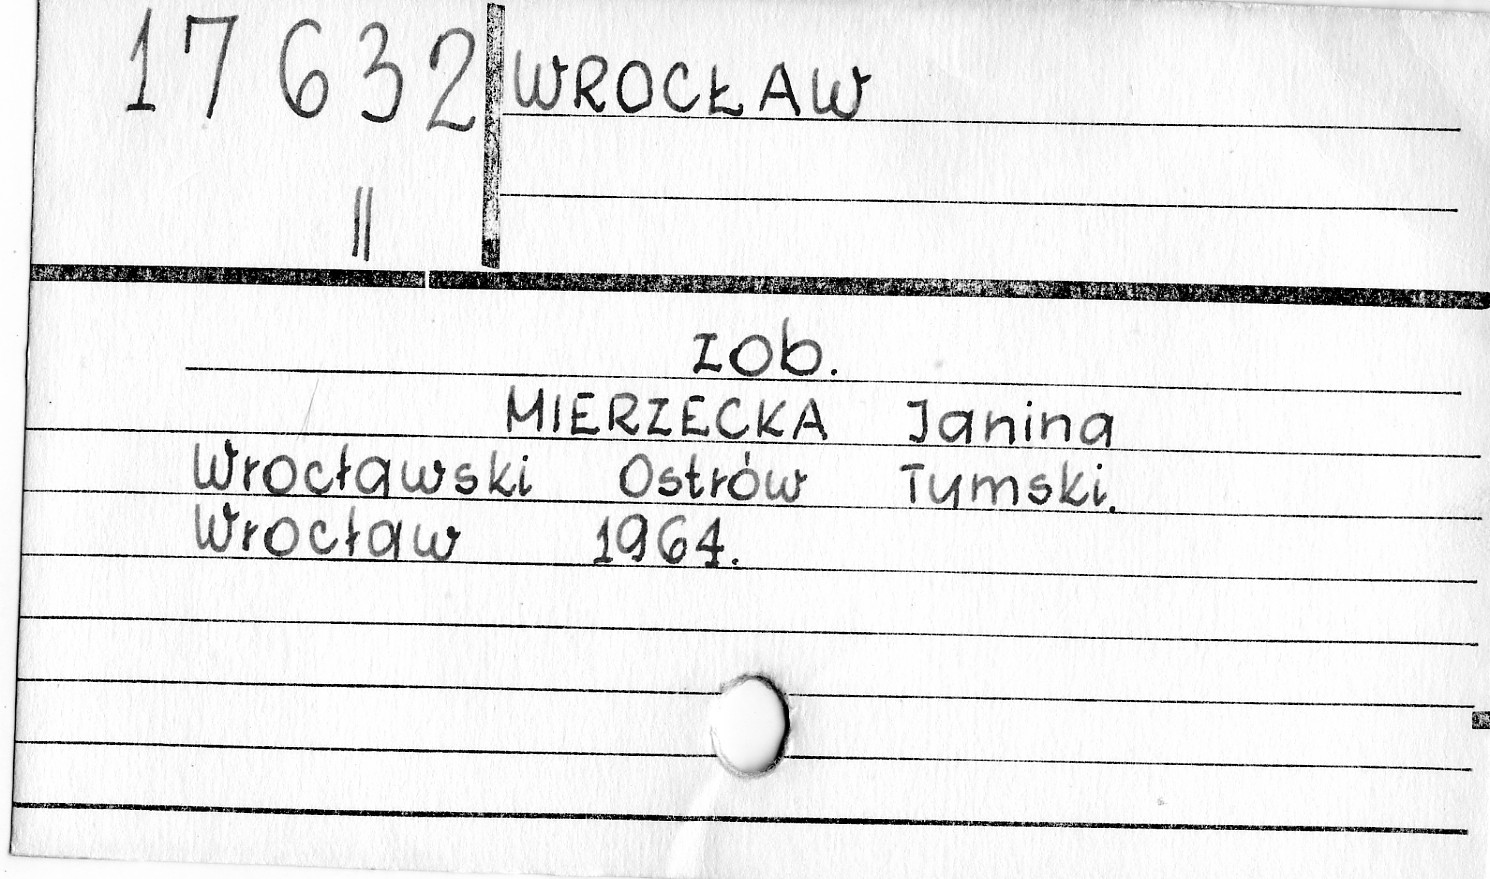 17 632
WROCŁAW
II
zob.
MIERZECKA Janina
Wrocławski Ostrów Tymski.
Wrocław 1964.